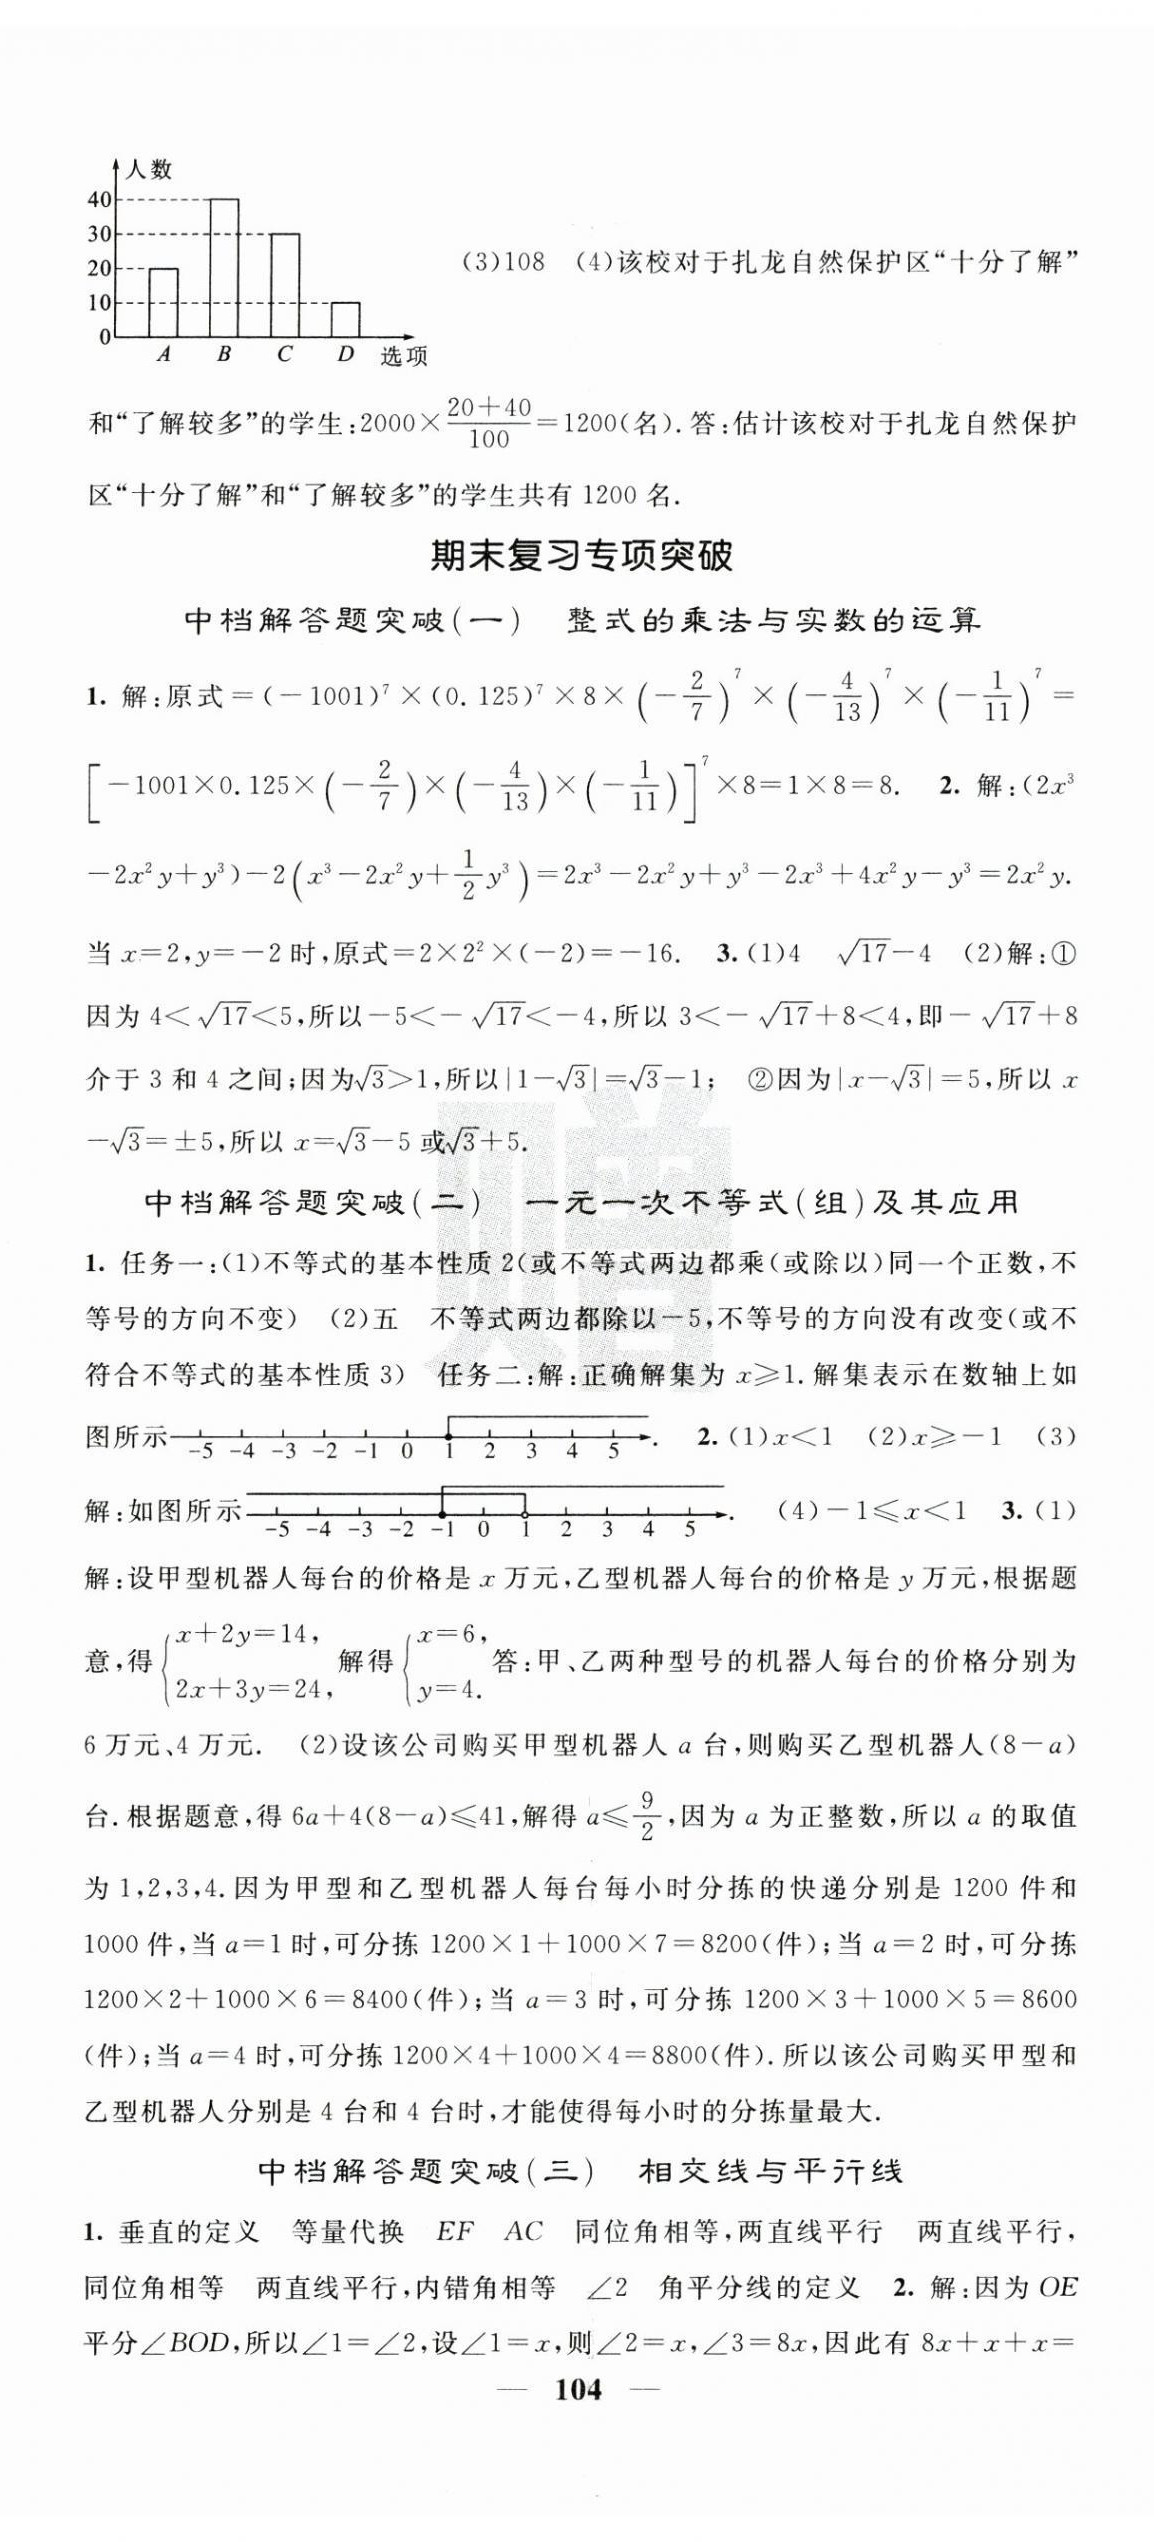 人数
40
30
20
10
0
A B C D 选项
(3)108 (4)该校对于扎龙自然保护区“十分了解”
和“了解较多”的学生:2000×\frac{20+40}{100}=1200(名).答:估计该校对于扎龙自然保护
区“十分了解”和“了解较多”的学生共有 1200 名.
期末复习专项突破
中档解答题突破(一) 整式的乘法与实数的运算
1. 解:原式=(-1001)⁷×(0.125)⁷×8×(-\frac{2}{7})⁷×(-\frac{4}{13})⁷×(-\frac{1}{11})⁷=
[-1001×0.125×(-\frac{2}{7})×(-\frac{4}{13})×(-\frac{1}{11})]⁷×8=1×8=8. 2. 解:(2x³
-2x²y+y³)-2(x³-2x²y+\frac{1}{2}y³)=2x³-2x²y+y³-2x³+4x²y-y³=2x²y.
当 x=2,y=-2 时,原式=2×2²×(-2)=-16. 3.(1)4 √17-4 (2)解:①
因为 4<√17<5,所以-5<-√17<-4,所以 3<-√17+8<4,即-√17+8
介于 3 和 4 之间;因为√3>1,所以|1-√3|=√3-1; ②因为|x-√3|=5,所以 x
-√3=±5,所以 x=√3-5 或√3+5.
中档解答题突破(二) 一元一次不等式(组)及其应用
1. 任务一:(1)不等式的基本性质 2(或不等式两边都乘(或除以)同一个正数,不
等号的方向不变) (2)五 不等式两边都除以-5,不等号的方向没有改变(或不
符合不等式的基本性质 3) 任务二:解:正确解集为 x≥1.解集表示在数轴上如
图所示 -5 -4 -3 -2 -1 0 1 2 3 4 5 . 2.(1)x<1 (2)x≥-1 (3)
解:如图所示 -5 -4 -3 -2 -1 0 1 2 3 4 5 . (4)-1≤x<1 3.(1)
解:设甲型机器人每台的价格是 x 万元,乙型机器人每台的价格是 y 万元,根据题
意,得{x+2y=14, 2x+3y=24, 解得{x=6, y=4. 答:甲、乙两种型号的机器人每台的价格分别为
6 万元、4 万元. (2)设该公司购买甲型机器人 a 台,则购买乙型机器人(8-a)
台.根据题意,得 6a+4(8-a)≤41,解得 a≤\frac{9}{2},因为 a 为正整数,所以 a 的取值
为 1,2,3,4.因为甲型和乙型机器人每台每小时分拣的快递分别是 1200 件和
1000 件,当 a=1 时,可分拣 1200×1+1000×7=8200(件);当 a=2 时,可分拣
1200×2+1000×6=8400(件);当 a=3 时,可分拣 1200×3+1000×5=8600
(件);当 a=4 时,可分拣 1200×4+1000×4=8800(件).所以该公司购买甲型和
乙型机器人分别是 4 台和 4 台时,才能使得每小时的分拣量最大.
中档解答题突破(三) 相交线与平行线
1. 垂直的定义 等量代换 EF AC 同位角相等,两直线平行 两直线平行,
同位角相等 两直线平行,内错角相等 ∠2 角平分线的定义 2. 解:因为 OE
平分∠BOD,所以∠1=∠2,设∠1=x,则∠2=x,∠3=8x,因此有 8x+x+x=
— 104 —
赠